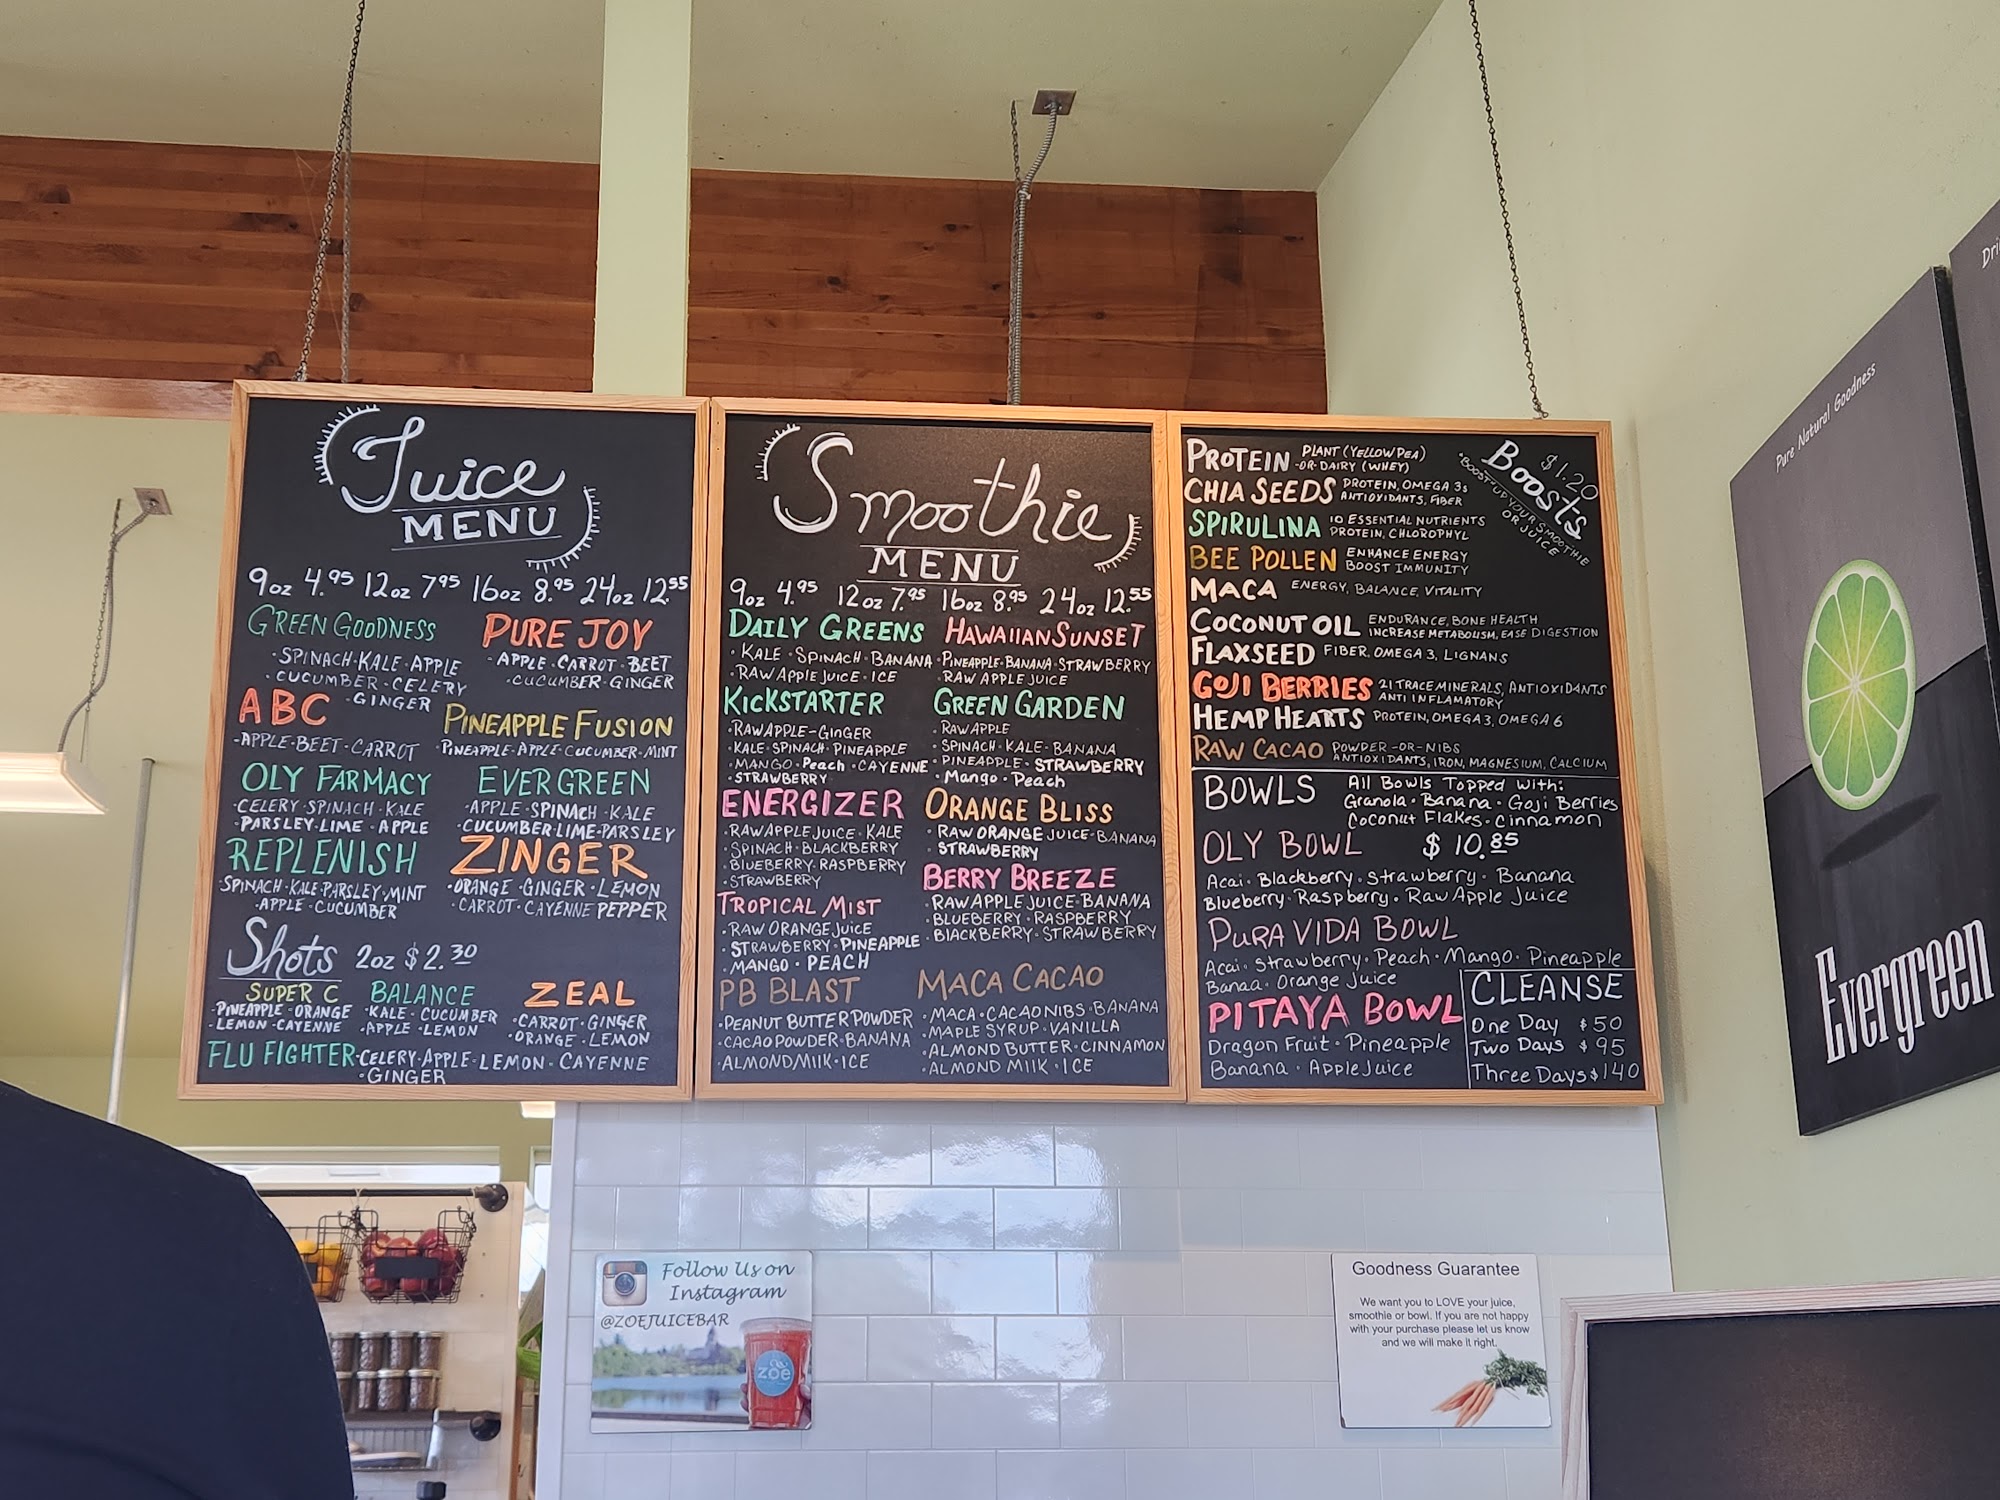 Juice
MENU
9oz 4.95 12oz 7.95 16oz 8.95 24oz 12.55
GREEN GOODNESS
·SPINACH·KALE·APPLE
·CUCUMBER·CELERY
·GINGER
PURE JOY
·APPLE·CARROT·BEET
·CUCUMBER·GINGER
ABC
·APPLE·BEET·CARROT
PINEAPPLE FUSION
·PINEAPPLE·APPLE·CUCUMBER·MINT
OLY FARMACY
·CELERY·SPINACH·KALE
·PARSLEY·LIME·APPLE
EVERGREEN
·APPLE·SPINACH·KALE
·CUCUMBER·LIME·PARSLEY
REPLENISH
·SPINACH·KALE·PARSLEY·MINT
·APPLE·CUCUMBER
ZINGER
·ORANGE·GINGER·LEMON
·CARROT·CAYENNE PEPPER
Shots 2oz $2.30
SUPER C
·PINEAPPLE·ORANGE
·LEMON·CAYENNE
BALANCE
·KALE·CUCUMBER
·APPLE·LEMON
ZEAL
·CARROT·GINGER
·ORANGE·LEMON
FLU FIGHTER·CELERY·APPLE·LEMON·CAYENNE
·GINGER
Smoothie
MENU
9oz 4.95 12oz 7.95 16oz 8.95 24oz 12.55
DAILY GREENS
·KALE·SPINACH·BANANA
·RAW APPLE JUICE·ICE
HAWAIIAN SUNSET
·PINEAPPLE·BANANA·STRAWBERRY
·RAW APPLE JUICE
KICKSTARTER
·RAW APPLE-GINGER
·KALE·SPINACH·PINEAPPLE
·MANGO·Peach·CAYENNE
·STRAWBERRY
GREEN GARDEN
·RAW APPLE
·SPINACH·KALE·BANANA
·PINEAPPLE·STRAWBERRY
·Mango·Peach
ENERGIZER
·RAW APPLE JUICE·KALE
·SPINACH·BLACKBERRY
·BLUEBERRY·RASPBERRY
·STRAWBERRY
ORANGE BLISS
·RAW ORANGE JUICE·BANANA
·STRAWBERRY
BERRY BREEZE
·RAW APPLE JUICE·BANANA
·BLUEBERRY·RASPBERRY
·BlACKBERRY·STRAWBERRY
TROPICAL MIST
·RAW ORANGE JUICE
·STRAWBERRY·PINEAPPLE
·MANGO·PEACH
PB BLAST
·PEANUT BUTTER POWDER
·CACAO POWDER·BANANA
·ALMOND MIlK·ICE
MACA CACAO
·MACA·CACAO NIBS·BANANA
·MAPLE SYRUP·VANILLA
·ALMOND BUTTER·CINNAMON
·ALMOND MIlK·ICE
BOOSTS $1.20
"BOOST" UP YOUR SMOOTHIE
OR JUICE
PROTEIN PLANT (YELLOW PEA)
-OR- DAIRY (WHEY)
CHIA SEEDS PROTEIN, OMEGA 3s
ANTIOXIDANTS, FIBER
SPIRULINA 10 ESSENTIAL NUTRIENTS
PROTEIN, CHLOROPHYL
BEE POLLEN ENHANCE ENERGY
BOOST IMMUNITY
MACA ENERGY, BALANCE, VITALITY
COCONUT OIL ENDURANCE, BONE HEALTH
INCREASE METABOLISM, EASE DIGESTION
FLAXSEED FIBER, OMEGA 3, LIGNANS
GOJI BERRIES 21 TRACE MINERALS, ANTIOXIDANTS
ANTI INFLAMATORY
HEMP HEARTS PROTEIN, OMEGA 3, OMEGA 6
RAW CACAO POWDER -OR- NIBS
ANTIOXIDANTS, IRON, MAGNESIUM, CALCIUM
BOWLS All Bowls Topped with:
Granola·Banana·Goji Berries
Coconut Flakes·Cinnamon
OLY BOWL $10.85
Acai·Blackberry·Strawberry·Banana
Blueberry·Raspberry·Raw Apple Juice
PURA VIDA BOWL
Acai·Strawberry·Peach·Mango·Pineapple
Banaa·Orange Juice
PITAYA BOWL
Dragon Fruit·Pineapple
Banana·Apple Juice
CLEANSE
One Day $50
Two Days $95
Three Days $140
Pure Natural Goodness
Evergreen
Dri
Follow Us on
Instagram
@ZOEJUICEBAR
zoe
Goodness Guarantee
We want you to LOVE your juice,
smoothie or bowl. If you are not happy
with your purchase please let us know
and we will make it right.